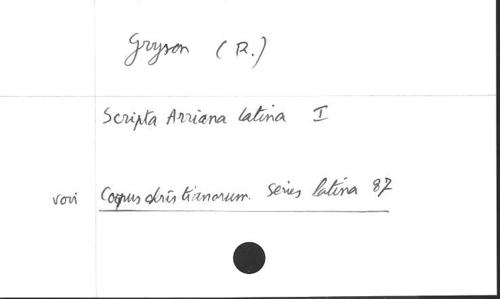 Gryson (R.)
Scripta Arriana latina I
voir Corpus christianorum. series latina 87